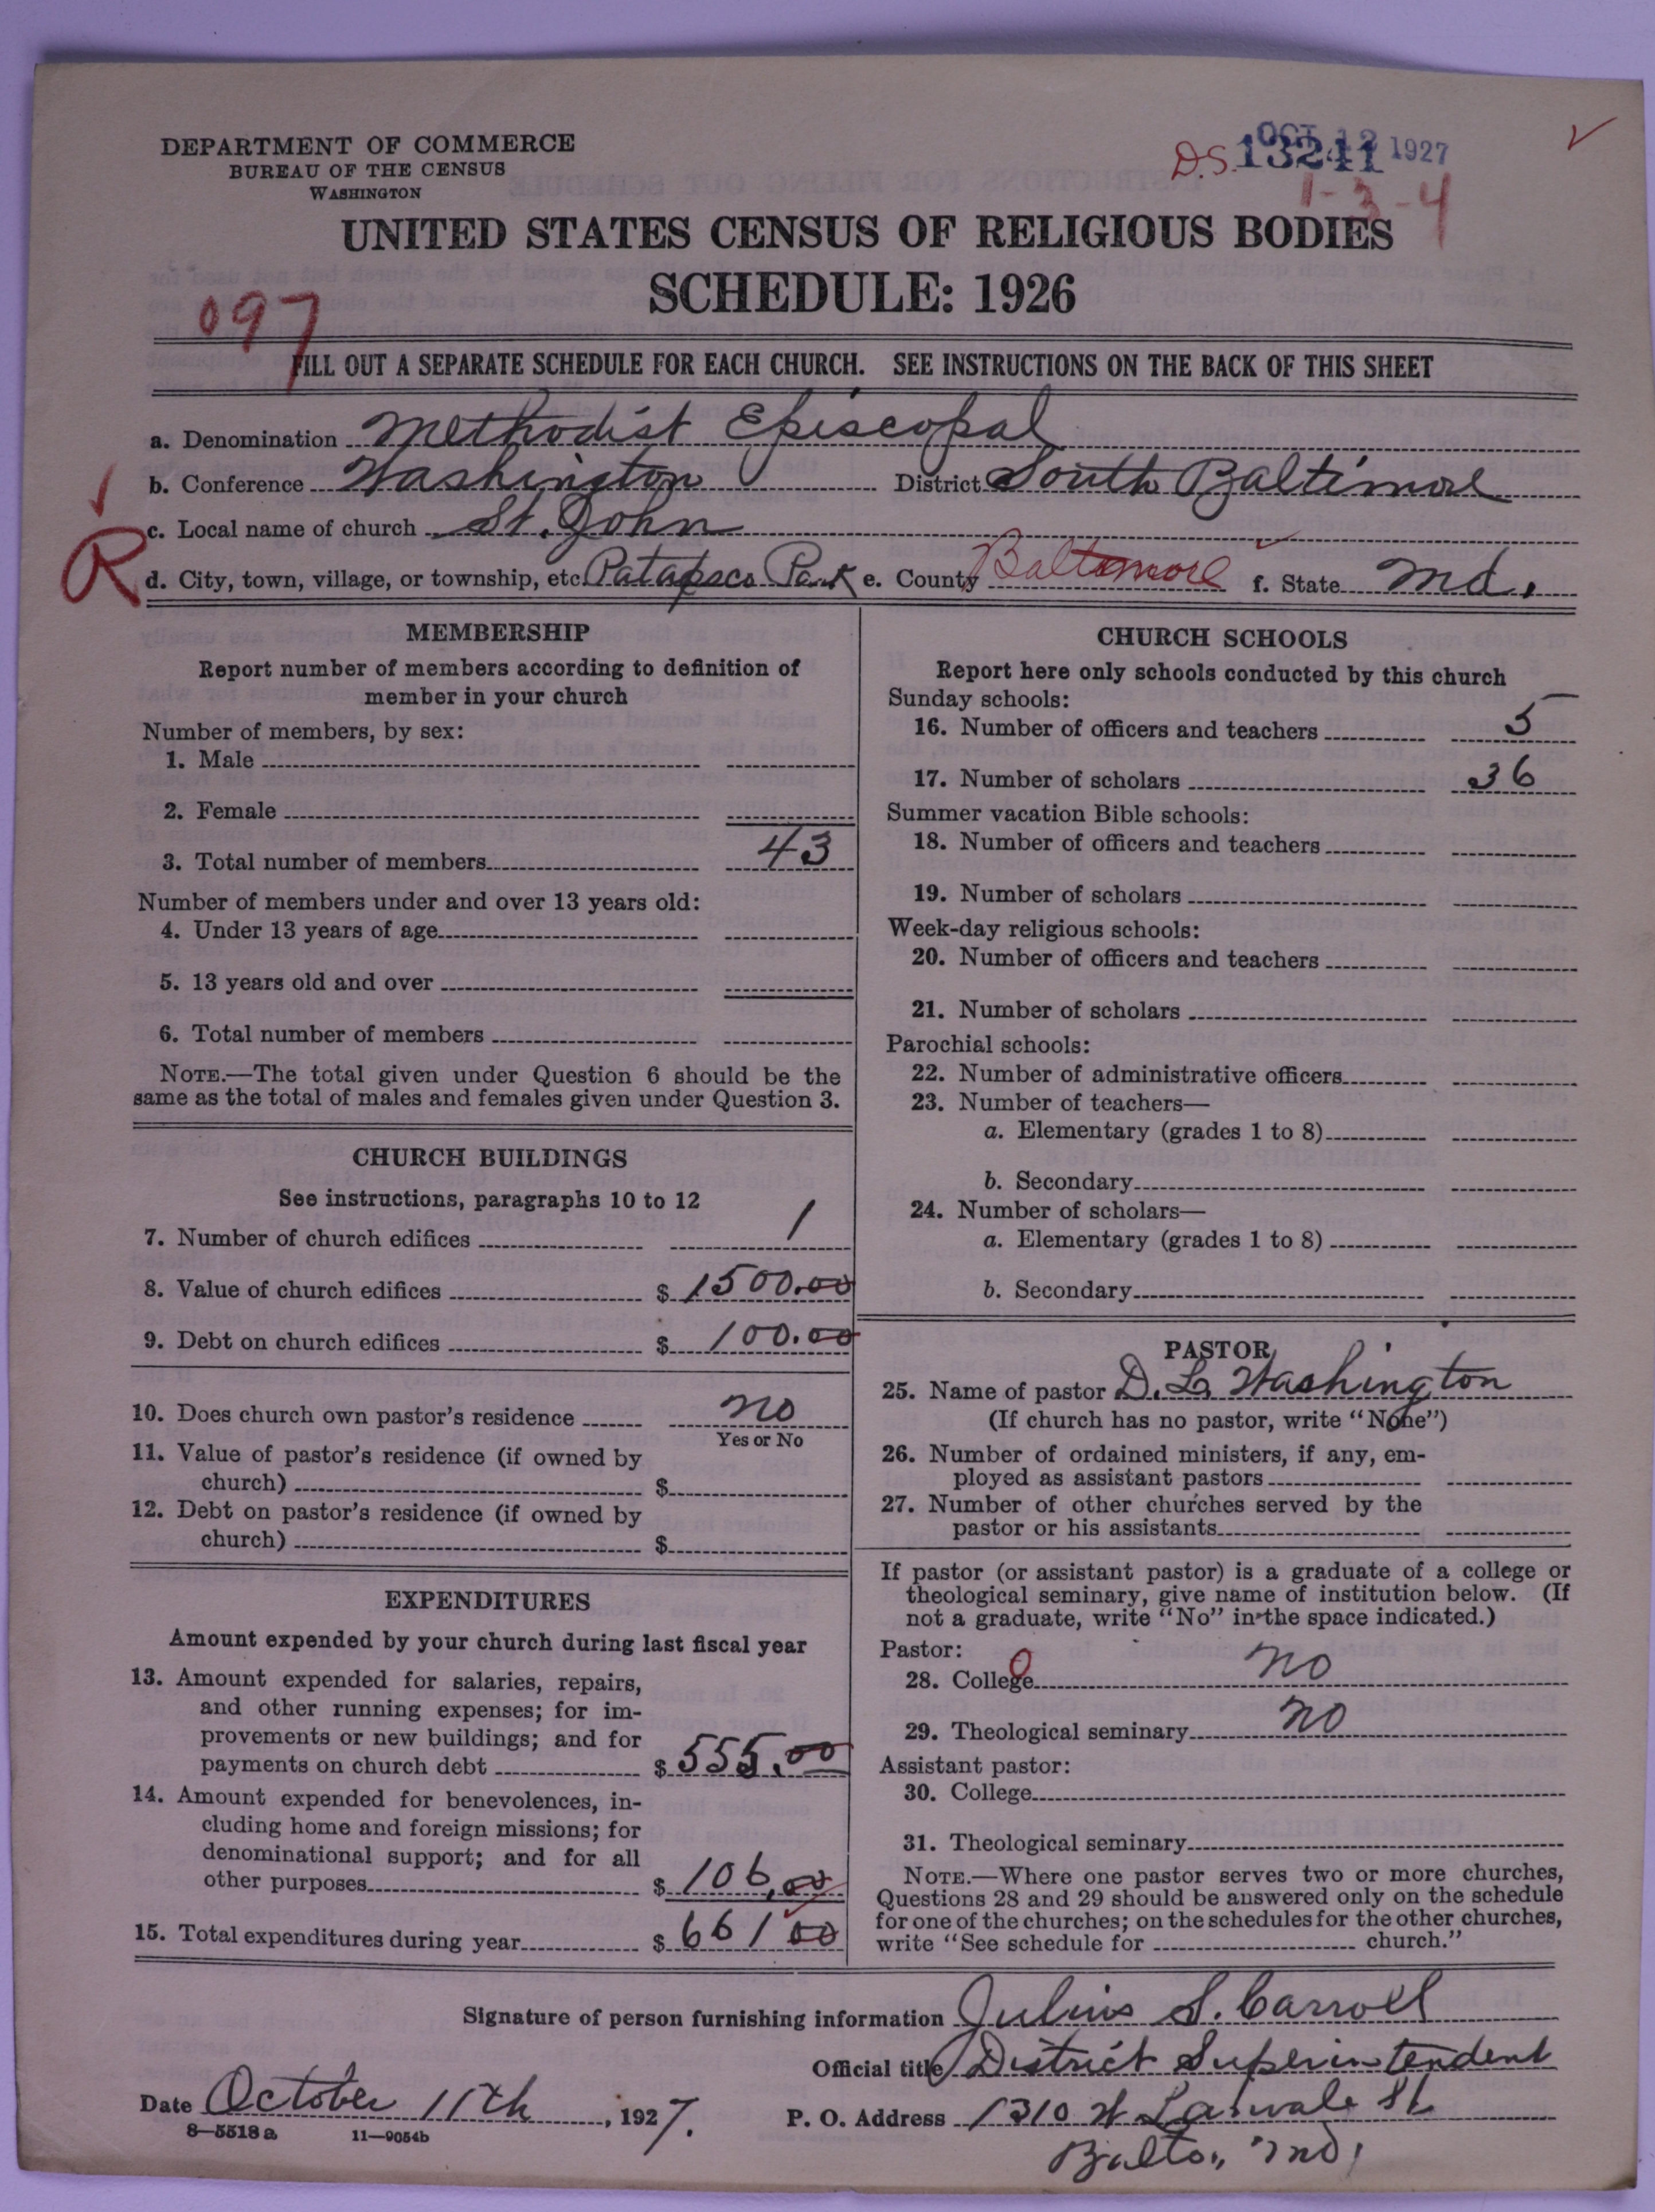 DEPARTMENT OF COMMERCE
BUREAU OF THE CENSUS
WASHINGTON
D.S. 13241
OCT 12 1927
1-3-4
UNITED STATES CENSUS OF RELIGIOUS BODIES
SCHEDULE: 1926
097
FILL OUT A SEPARATE SCHEDULE FOR EACH CHURCH. SEE INSTRUCTIONS ON THE BACK OF THIS SHEET
a. Denomination Methodist Episcopal
b. Conference Washington District South Baltimore
c. Local name of church St. John
R
d. City, town, village, or township, etc. Patapsco Park e. County Baltimore f. State Md.
MEMBERSHIP
Report number of members according to definition of
member in your church
Number of members, by sex:
1. Male
2. Female
3. Total number of members 43
Number of members under and over 13 years old:
4. Under 13 years of age
5. 13 years old and over
6. Total number of members
NOTE.—The total given under Question 6 should be the
same as the total of males and females given under Question 3.
CHURCH BUILDINGS
See instructions, paragraphs 10 to 12
7. Number of church edifices 1
8. Value of church edifices $ 1500.00
9. Debt on church edifices $ 100.00
10. Does church own pastor's residence no
Yes or No
11. Value of pastor's residence (if owned by
church) $
12. Debt on pastor's residence (if owned by
church) $
EXPENDITURES
Amount expended by your church during last fiscal year
13. Amount expended for salaries, repairs,
and other running expenses; for im-
provements or new buildings; and for
payments on church debt $ 555.00
14. Amount expended for benevolences, in-
cluding home and foreign missions; for
denominational support; and for all
other purposes $ 106.00
15. Total expenditures during year $ 661 00
CHURCH SCHOOLS
Report here only schools conducted by this church
Sunday schools:
16. Number of officers and teachers 5
17. Number of scholars 36
Summer vacation Bible schools:
18. Number of officers and teachers
19. Number of scholars
Week-day religious schools:
20. Number of officers and teachers
21. Number of scholars
Parochial schools:
22. Number of administrative officers
23. Number of teachers—
a. Elementary (grades 1 to 8)
b. Secondary
24. Number of scholars—
a. Elementary (grades 1 to 8)
b. Secondary
PASTOR
25. Name of pastor D. L. Washington
(If church has no pastor, write "None")
26. Number of ordained ministers, if any, em-
ployed as assistant pastors
27. Number of other churches served by the
pastor or his assistants
If pastor (or assistant pastor) is a graduate of a college or
theological seminary, give name of institution below. (If
not a graduate, write "No" in the space indicated.)
Pastor:
28. College no
0
29. Theological seminary no
Assistant pastor:
30. College
31. Theological seminary
NOTE.—Where one pastor serves two or more churches,
Questions 28 and 29 should be answered only on the schedule
for one of the churches; on the schedules for the other churches,
write "See schedule for church."
Signature of person furnishing information Julius S. Carroll
Official title District Superintendent
Date October 11th, 1927. P. O. Address 1310 W Lanvale St.
8—5518 a 11—9054b
Balto., Md.